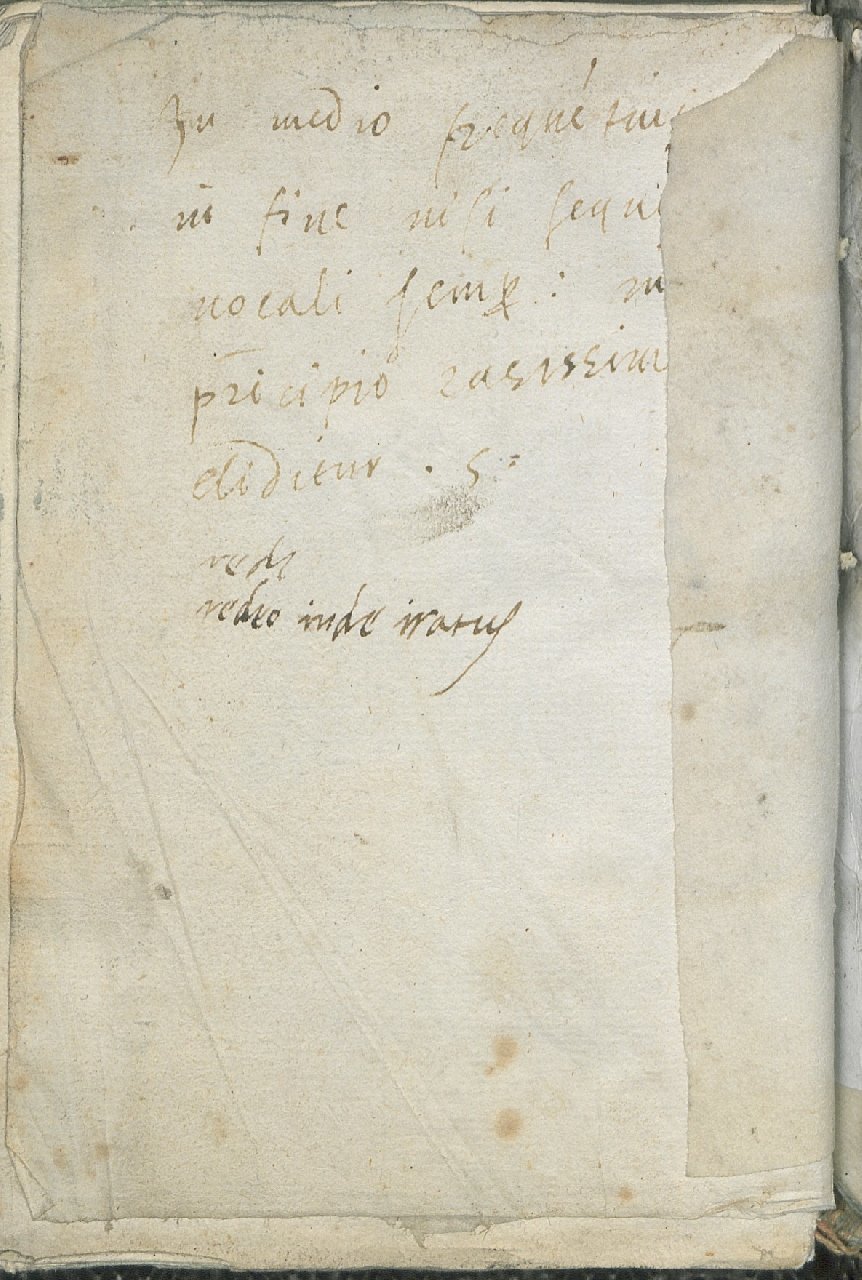 In medio frequẽ
in fine nisi sequi
uocali semꝑ : in
pr̃icipio rarissim
eliditur . s.
rede
redeo inde iratus